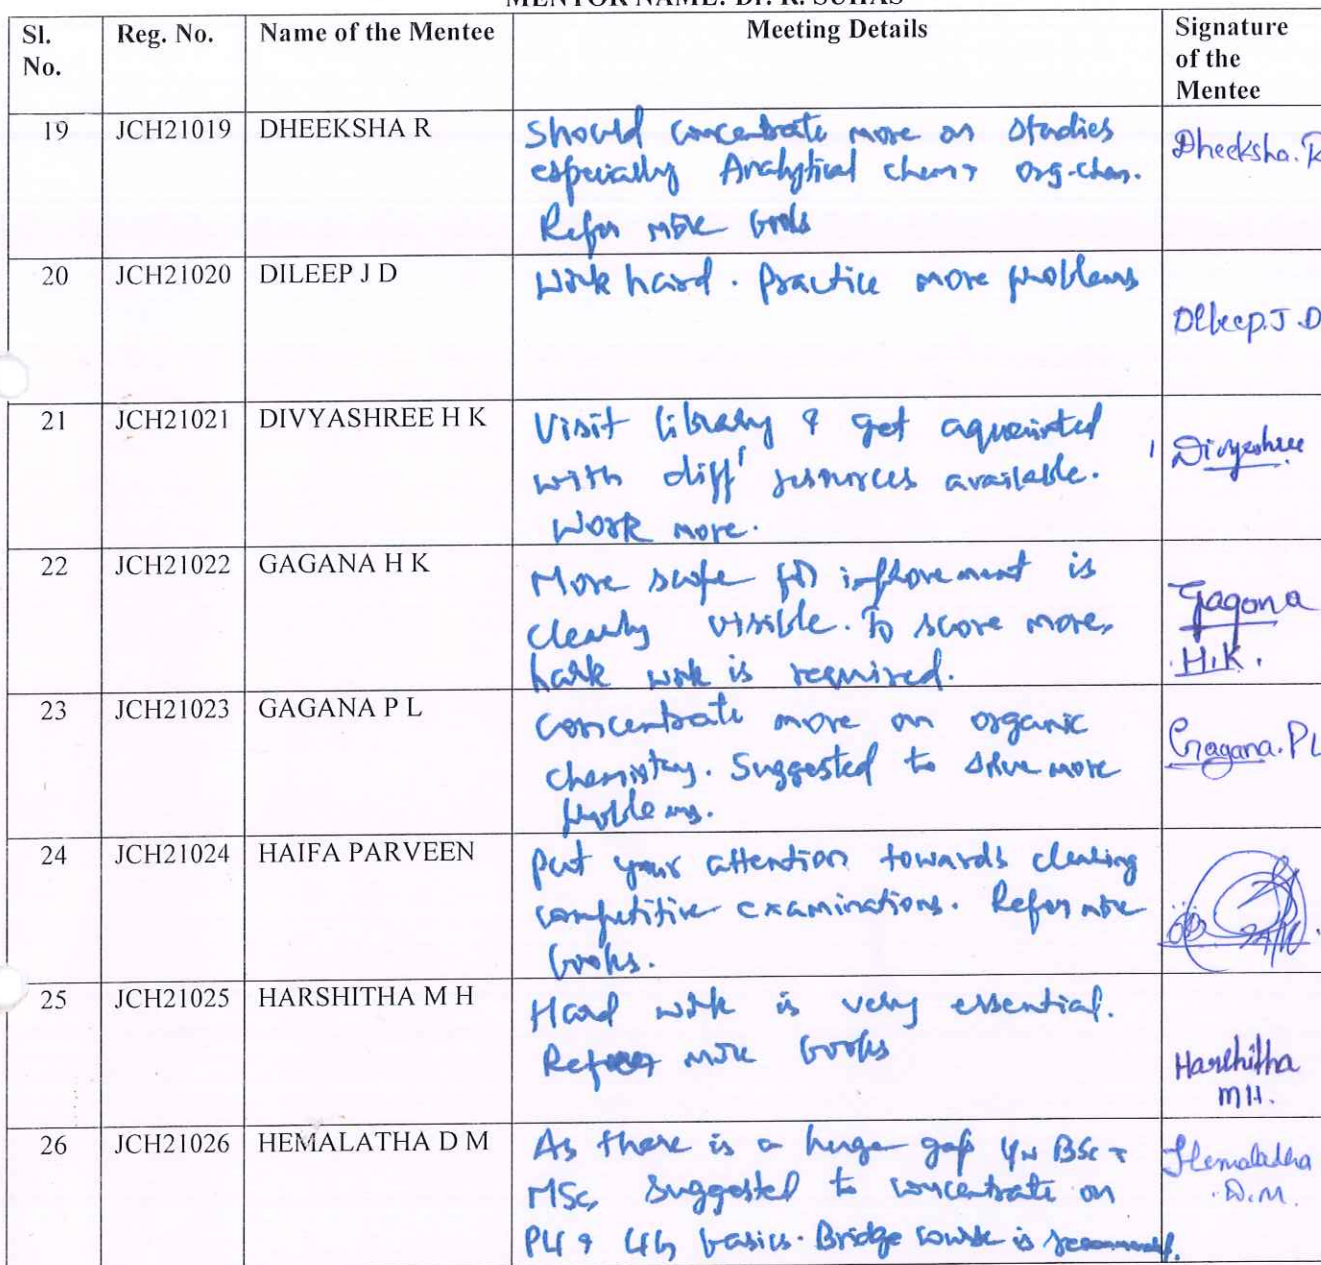 MENTOR NAME: Dr. R. SUHAS
Sl. No. Reg. No. Name of the Mentee Meeting Details Signature of the Mentee
19 JCH21019 DHEEKSHA R Should concentrate more on studies Dheeksha.R
especially Analytical chem & org.chem.
Refer more books
20 JCH21020 DILEEP J D Work hard. Practice more problems Dileep.J.D
21 JCH21021 DIVYASHREE H K Visit library & get aquainted Divyashree
with diff' resources available.
Work more.
22 JCH21022 GAGANA H K More scope for improvement is Gagana
clearly visible. To score more, H.K.
hark work is required.
23 JCH21023 GAGANA P L Concentrate more on organic Gagana.PL
chemistry. Suggested to solve more
problems.
24 JCH21024 HAIFA PARVEEN Put your attention towards clearing
competitive examinations. Refer more
books.
25 JCH21025 HARSHITHA M H Hard work is very essential. Harshitha
Refer more books MH.
26 JCH21026 HEMALATHA D M As there is a huge gap BSc & Hemalatha
MSc, suggested to concentrate on D.M.
& basics. Bridge course is